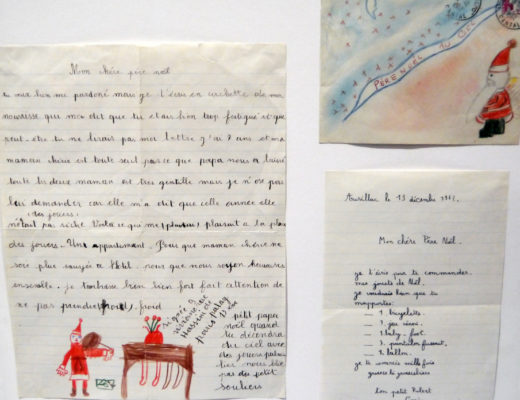 Mon chère père noël
tu vas bien me pardoné mais je t'écris en cachette de ma
nourisse qui m'a dit que tu étais bien trop fatigué et que
peut être tu ne lirais pas ma lettre j'ai 7 ans et ma
maman chérie est toute seul parce que papa nous a laissé
toute les deux maman est très gentille mais je n'ose pas
lui demander car elle m'a dit que cette année elle
(des jouets)
n'était pas riche Voila ce qui me (plaisir) plairait a la place
des jouets. Un appartement. Pour que maman chérie ne
soie plus à l'hotel. pour que nous soyon heureuses
ensemble. je t'embrasse bien bien fort fait attention de
ne pas prendre (froid). froid
signé
petit papa
noël quand
tu décendra
du ciel avec
des jouets
pas
petit
souliers
PÈRE NOEL AU CIEL
Aurillac le 13 décembre
Mon chère Père Noël.
je t'écris pour te commander
mes jouets de Noël.
je voudrais bien que tu
m'apportes.
— 1 bicyclette.
— 1 jeu
— 1 baby-foot.
— 1 pantalon
— 1 ballon
je te remercie mille fois
ton petit Robert